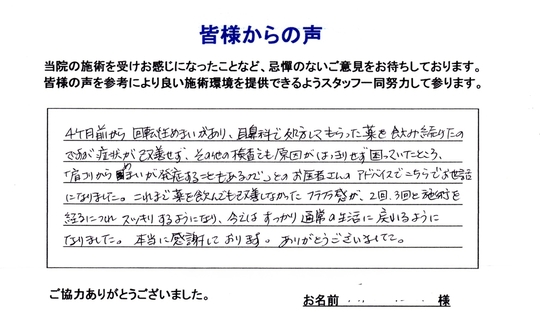 皆様からの声
当院の施術を受けお感じになったことなど、忌憚のないご意見をお待ちしております。
皆様の声を参考により良い施術環境を提供できるようスタッフ一同努力して参ります。
4ケ月前から回転性めまいがあり、耳鼻科で処方してもらった薬を飲み続けたの
ですが症状が改善せず、その他の検査でも原因がはっきりせず困っていたところ、
「肩こりから めまいが発症することもあるので」とのお医者さんのアドバイスでこちらでお世話
になりました。これまで薬を飲んでも改善しなかったフラフラ感が、2回、3回と施術を
経るにつれスッキリするようになり、今ではすっかり通常の生活に戻れるように
なりました。本当に感謝しております。ありがとうございました。
ご協力ありがとうございました。
お名前 様